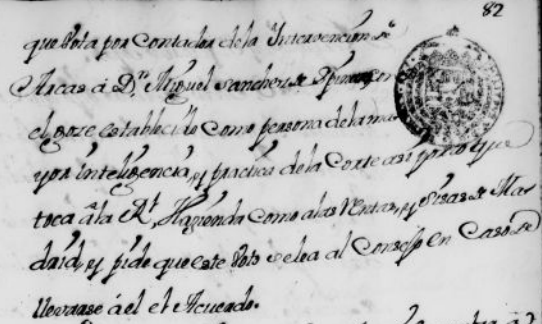 82
que Vota por Contador de la Intervencion de
Arcas á Dn. Miguel Sanchez de con
el goze establecido como persona de la ma
yor inteligencia, y practica de la Corte asi por lo que
toca á la Rl. Hazienda como a las Rentas, y Sisas de Ma
drid, y pide que este Voto se lea al Consejo en Caso de
llevarse á el el Acuerdo.